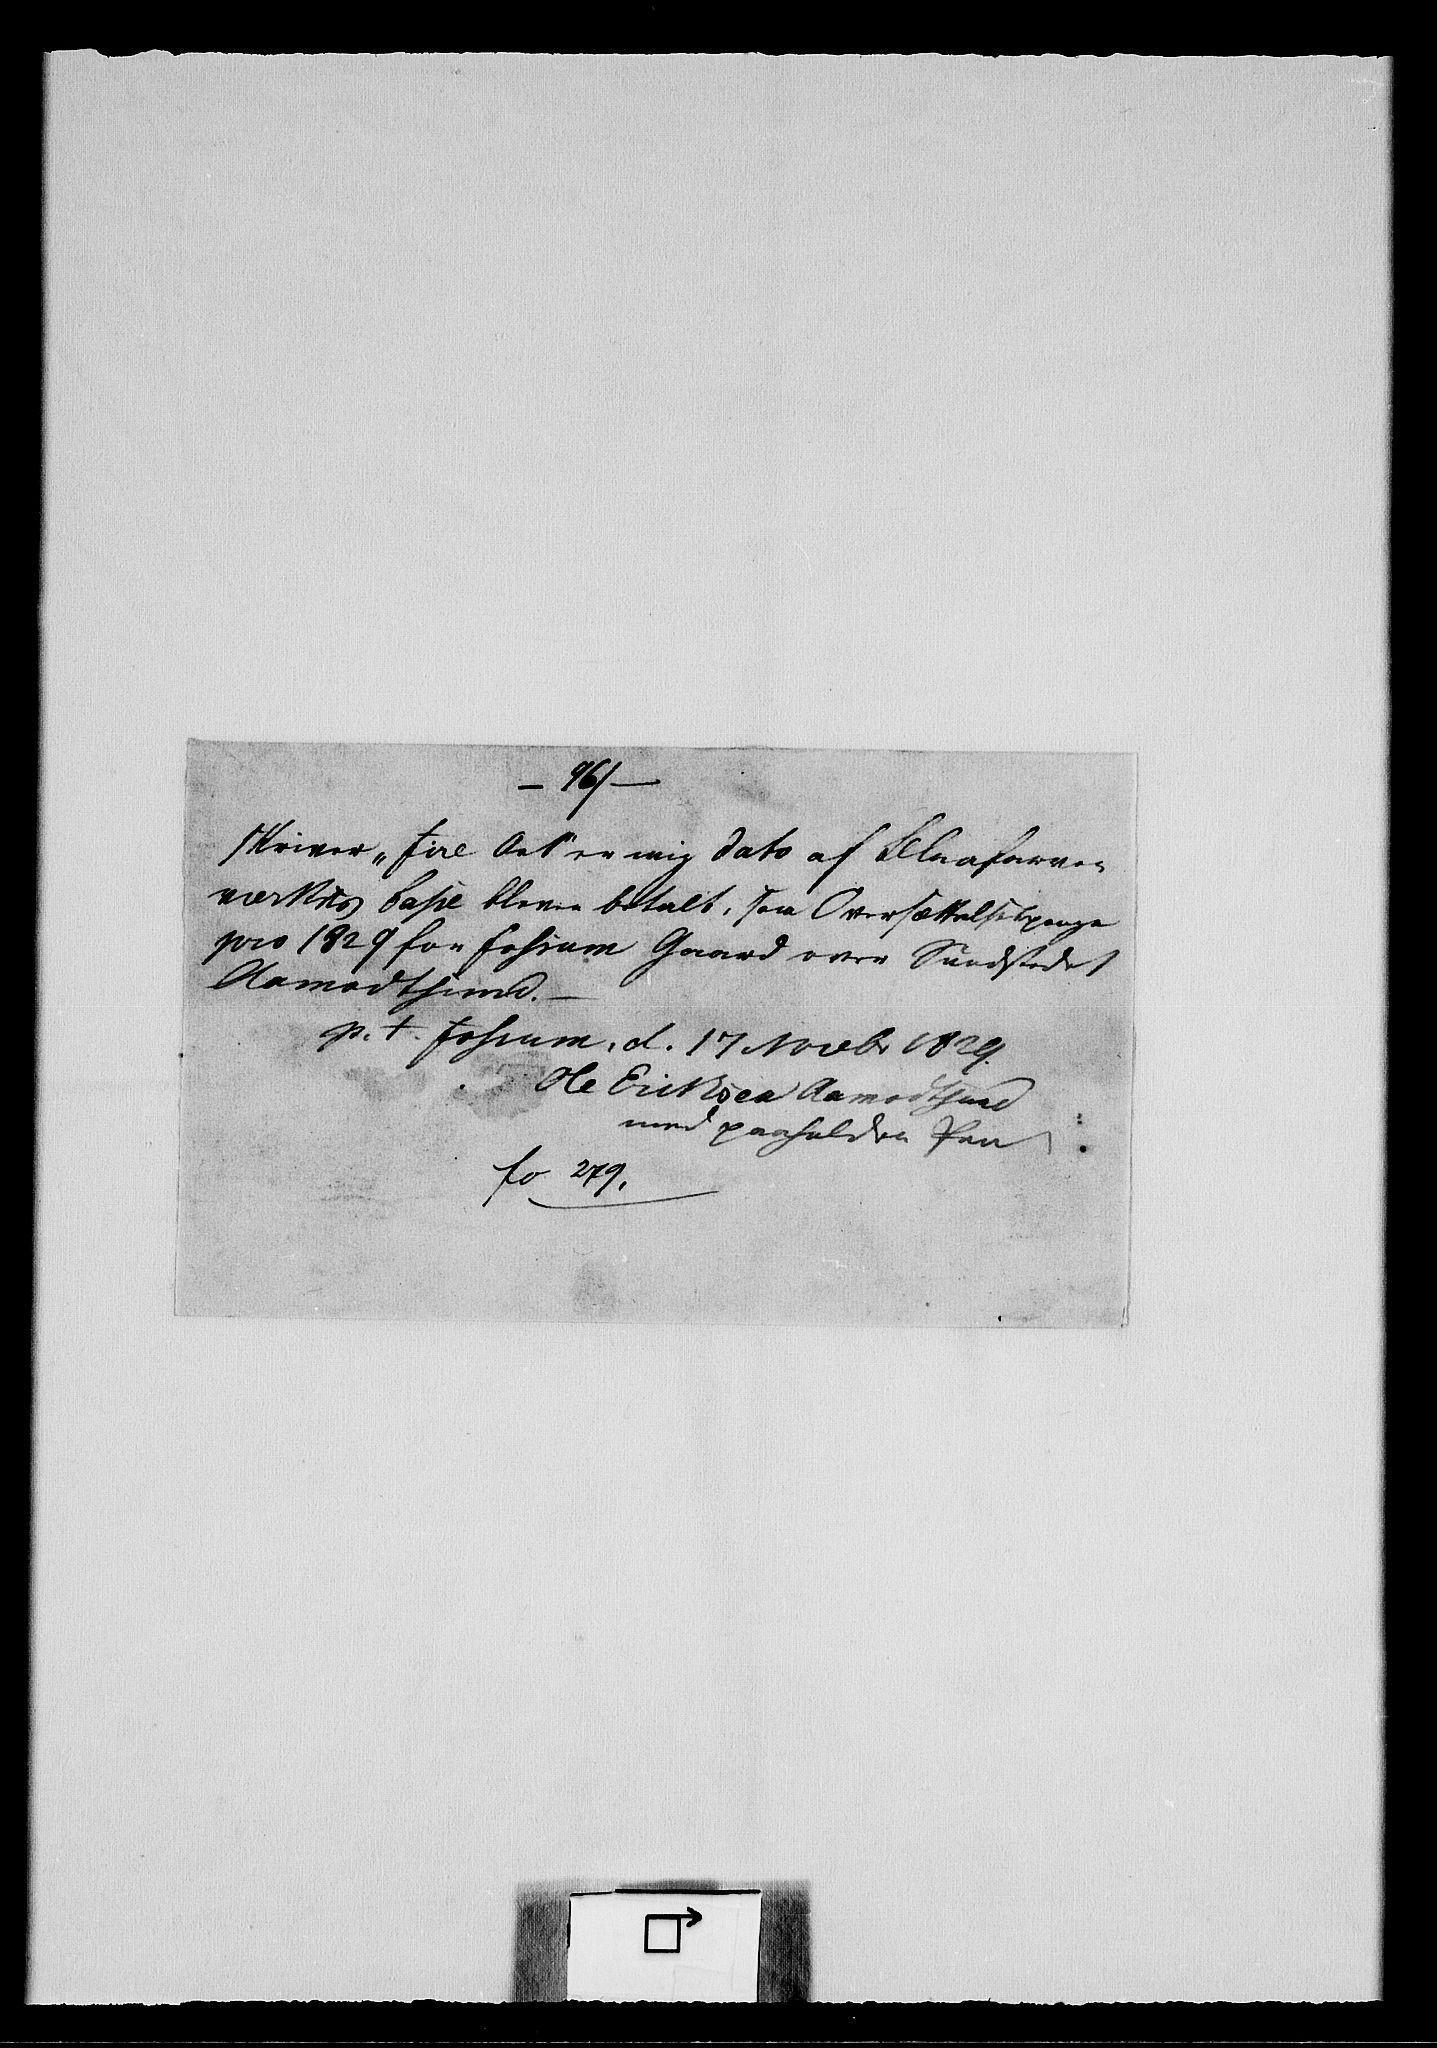 — 96/ —
skriver „ fire Ort" er mig dato af Blaafarve
værkets Casse bleven betalt, som Oversættelsespenge
pro 1829 for Fossum Gaard over Sundstedet
Aamodtsund. —
p. t. Fossum, d. 17 Novebr 1829.
Ole Ericksen Aamodtsund
med paaholden Pen
fo 279.